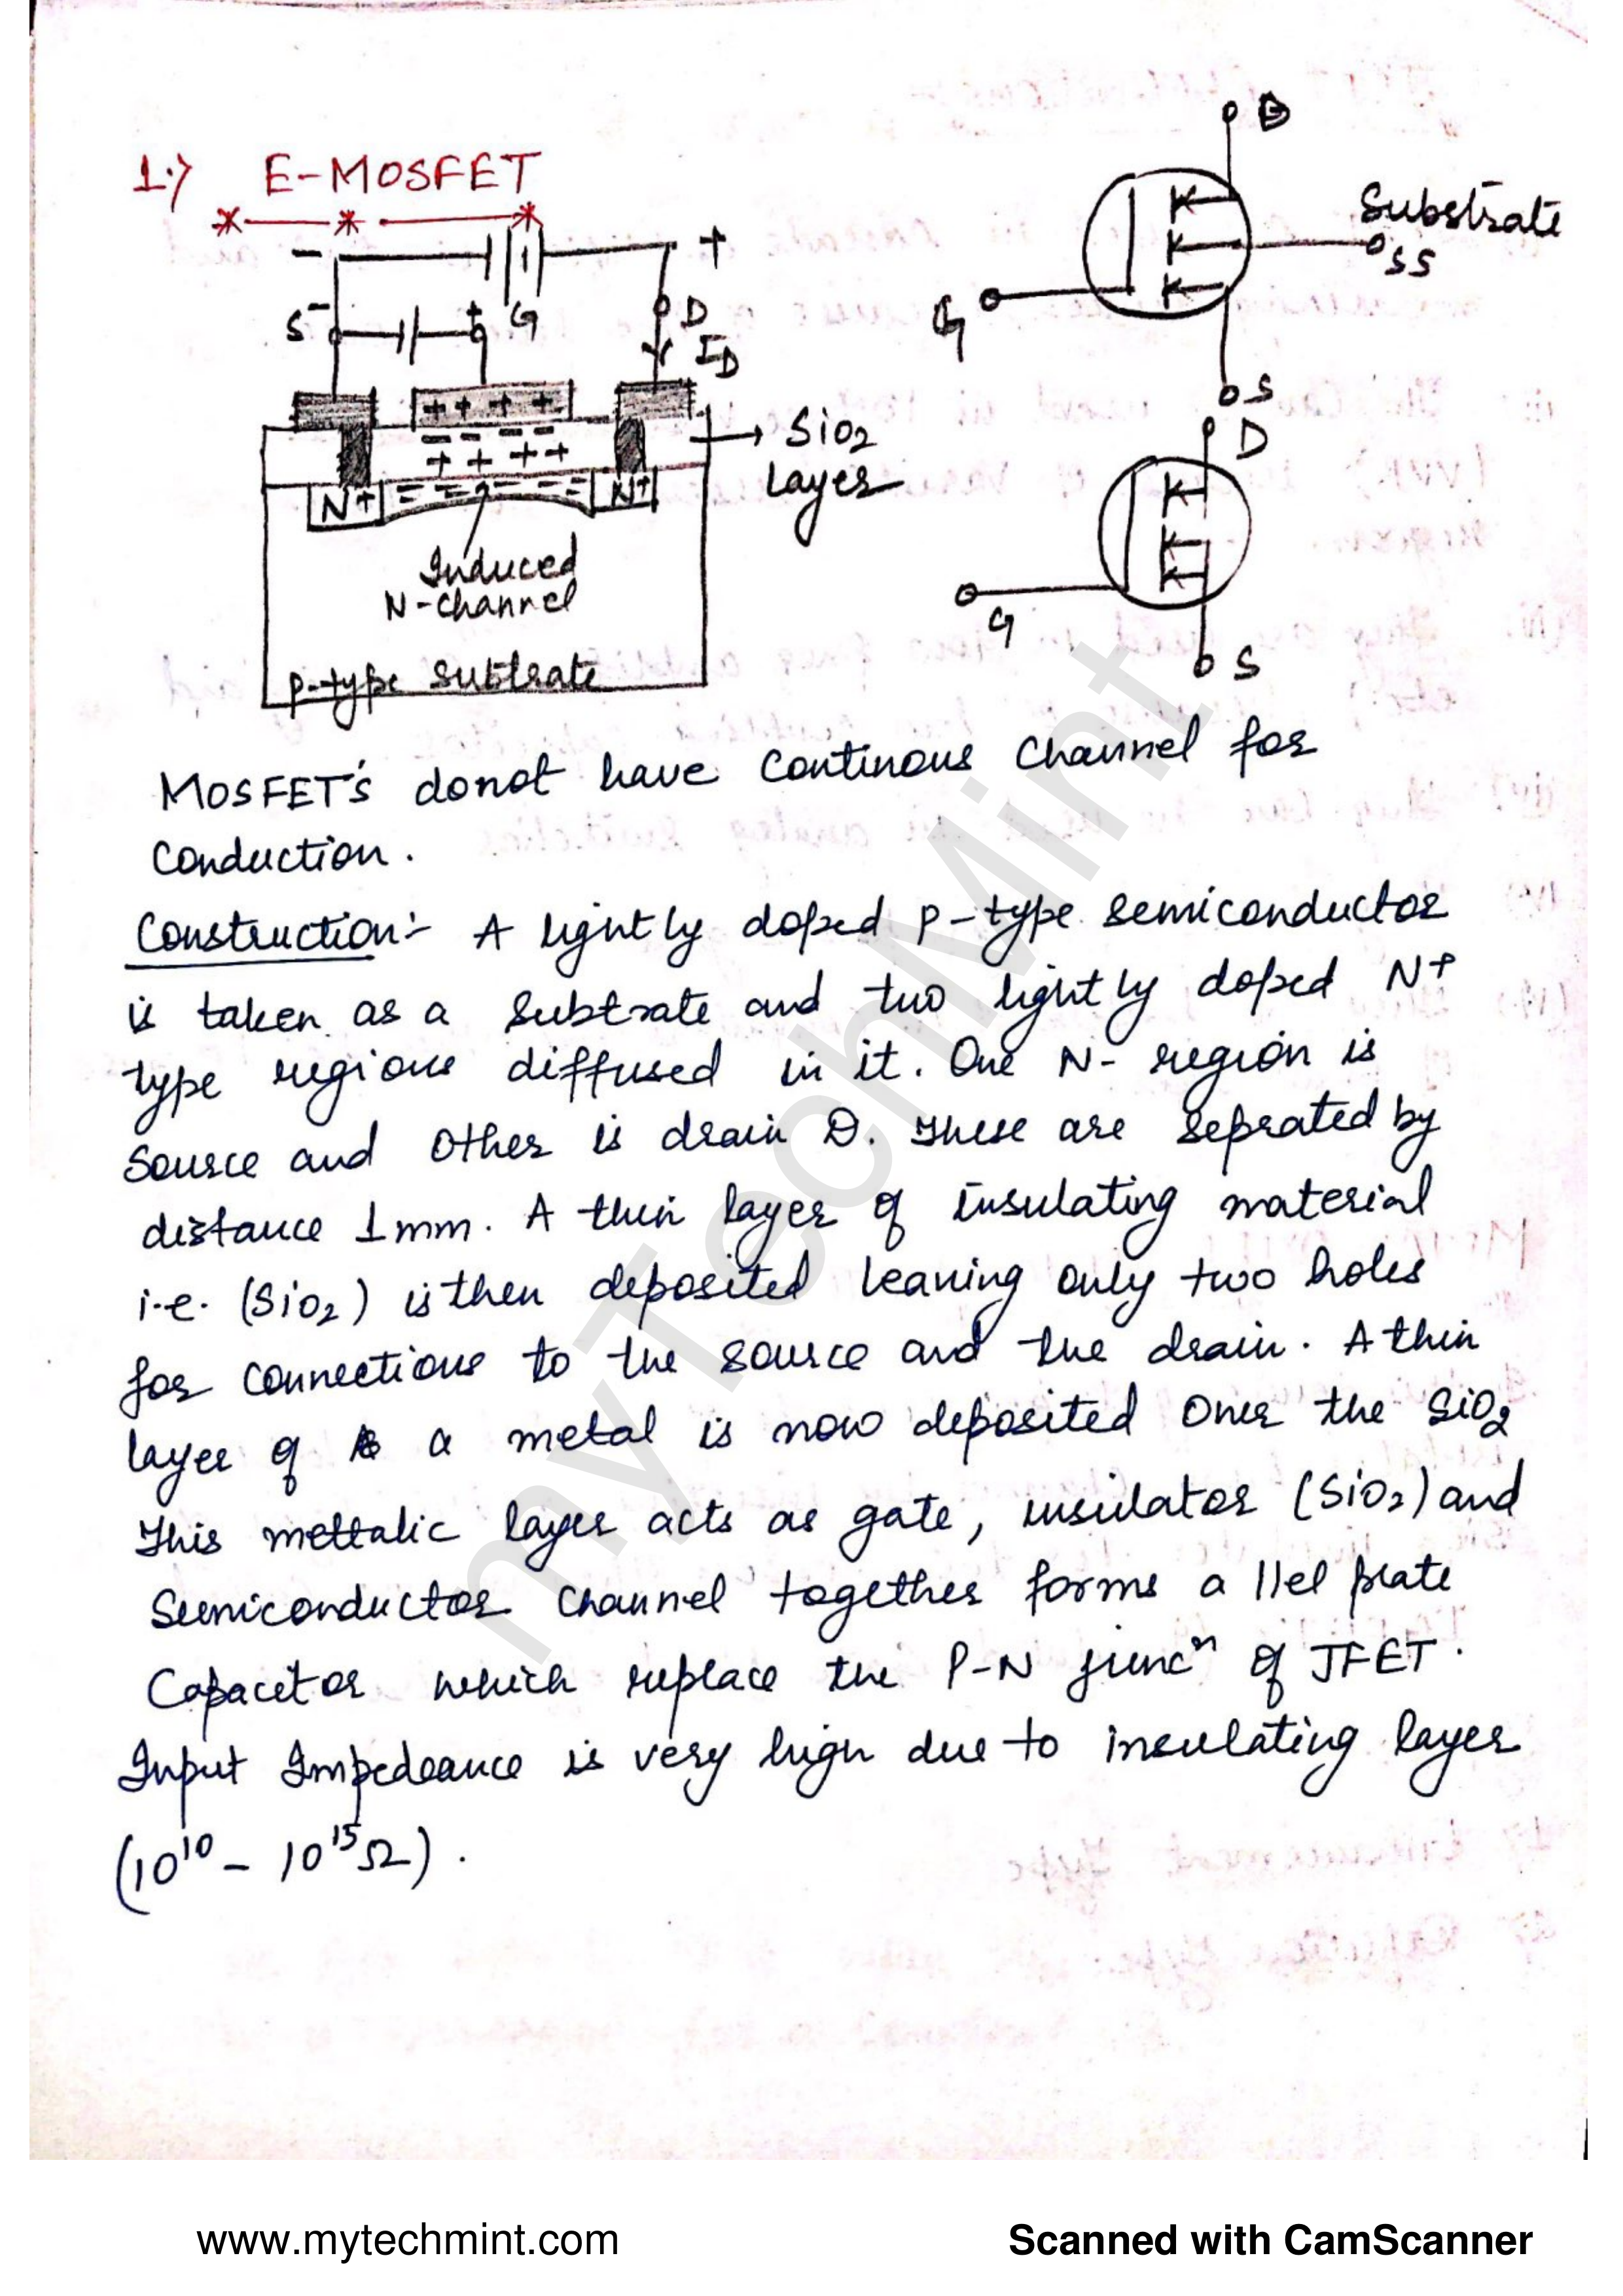 1.) E-MOSFET
D
Substrate
SS
G
S
- +
S - + G D
ID
+ + + +
- - - -
+ + + +
SiO2
Layer
N+ - - - - - - N+
Induced
N-channel
P-type Subtrate
D
G
S
MOSFET's donot have Continous Channel for
Conduction.
Construction:- A lightly doped P-type semiconductor
is taken as a Subtrate and two lightly doped N+
type regions diffused in it. One N- region is
Source and Other is drain D. These are seprated by
distance 1mm. A thin layer of insulating material
i.e. (SiO2) is then deposited leaving only two holes
for connections to the source and the drain. A thin
layer of a metal is now deposited Over the SiO2
This mettalic layer acts as gate, insulator (SiO2) and
Semiconductor Channel together forms a llel plate
Capacitor which replace the P-N juncn of JFET.
Input Impedeance is very high due to insulating layer
(10^10 - 10^15 Ω).
myTechMint
www.mytechmint.com Scanned with CamScanner